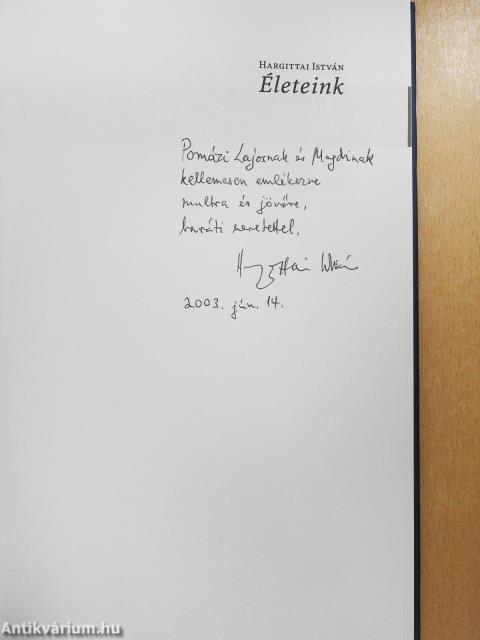 HARGITTAI ISTVÁN
Életeink
Pomázi Lajosnak és Magdinak
kellemesen emlékezve
multra és jövőre,
baráti szeretettel,
Hargittai István
2003. jún. 14.
Antikvárium.hu